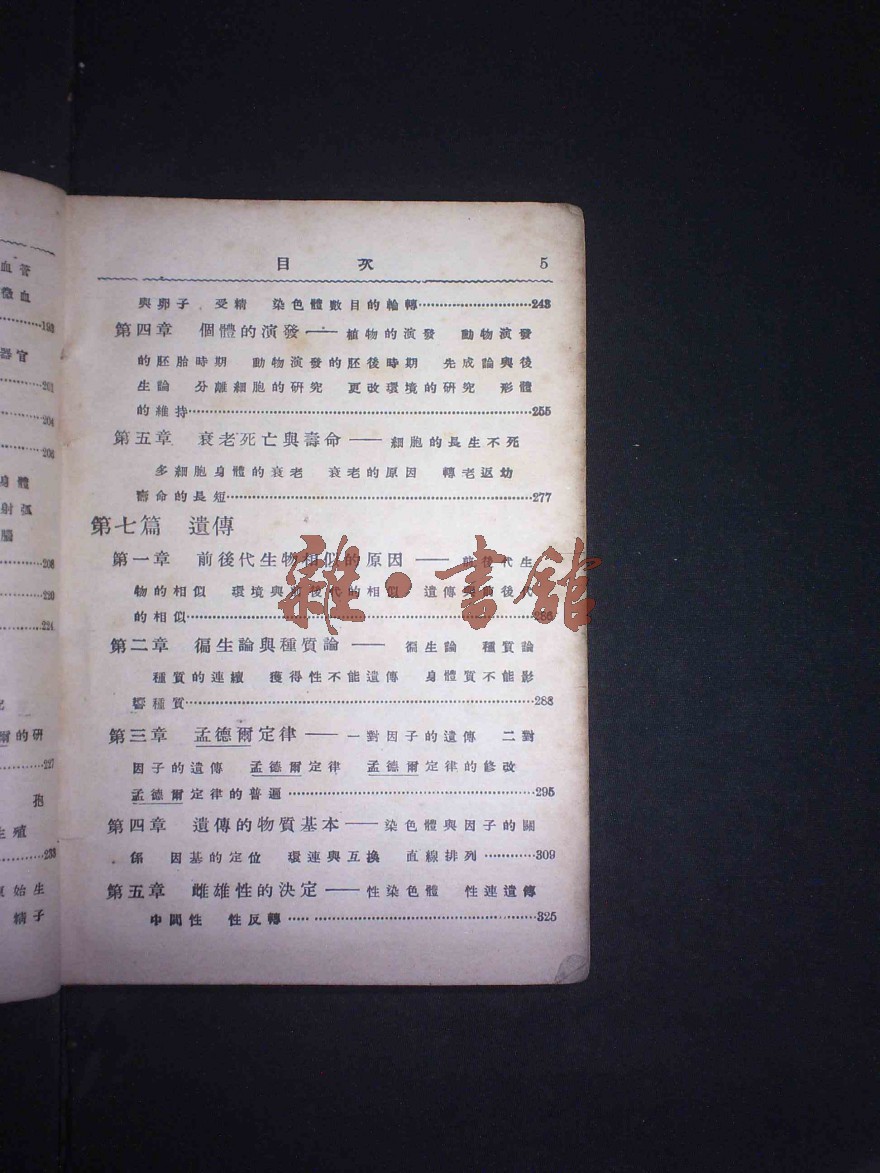 目 次 5
與卵子 受精 染色體數目的輪轉……243
第四章 個體的演發——植物的演發 動物演發
的胚胎時期 動物演發的胚後時期 先成論與後
生論 分離細胞的研究 更改環境的研究 形體
的維持……255
第五章 衰老死亡與壽命——細胞的長生不死
多細胞身體的衰老 衰老的原因 轉老返幼
壽命的長短……277
第七篇 遺傳
第一章 前後代生物相似的原因——前後代生
物的相似 環境與前後代的相似 遺傳與前後代
的相似……286
第二章 徧生論與種質論——徧生論 種質論
種質的連續 獲得性不能遺傳 身體質不能影
響種質……288
第三章 孟德爾定律——一對因子的遺傳 二對
因子的遺傳 孟德爾定律 孟德爾定律的修改
孟德爾定律的普遍……295
第四章 遺傳的物質基本——染色體與因子的關
係 因基的定位 環連與互換 直線排列……309
第五章 雌雄性的決定——性染色體 性連遺傳
中間性 性反轉……325
雜·書館
血管
微血
……193
器官
……201
……204
……206
身體
射弧
腦
……208
……220
……224
爾的研
……227
孢
生殖
……233
原始生
精子